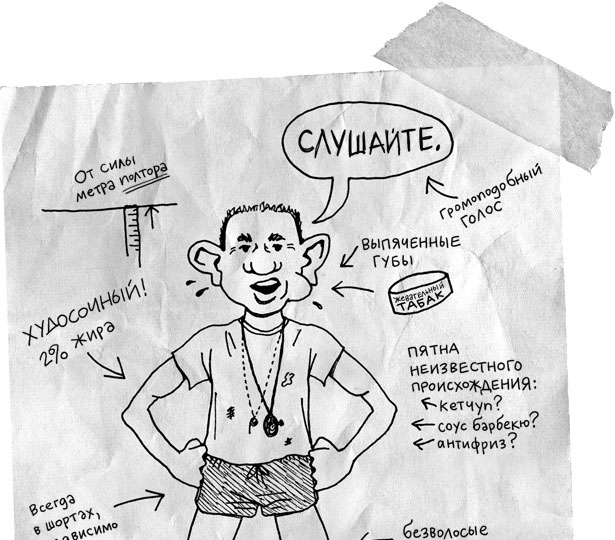 СЛУШАЙТЕ.
От силы
метра полтора
громоподобный
голос
выпяченные
губы
жевательный
табак
худосочный!
2% жира
пятна
неизвестного
происхождения:
кетчуп?
соус барбекю?
антифриз?
Всегда
в шортах,
безволосые